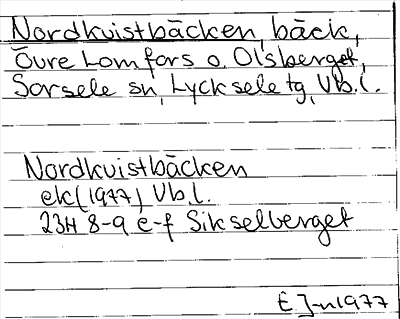 Nordkvistbäcken, bäck,
Övre Lomfors o. Olsberget,
Sorsele sn, Lycksele tg, Vb.l.
Nordkvistbäcken
ek (1977) Vb.l.
23H 8-9 e-f Sikselberget
E J-n 1977